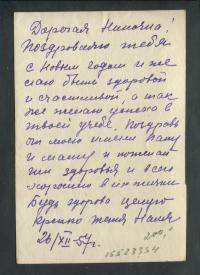 Дорогая Ниночка!
Поздравляю тебя
с Новым годом и же
лаю быть здоровой
и счастливой, а так
же желаю успеха в
твоей учебе. Поздравь
от моего имени папу
и маму и пожелай
им здоровья и всего
хорошего в их жизни
Будь здорова целую
крепко тетя Наля
26/XII-57г.
200,-
15523354